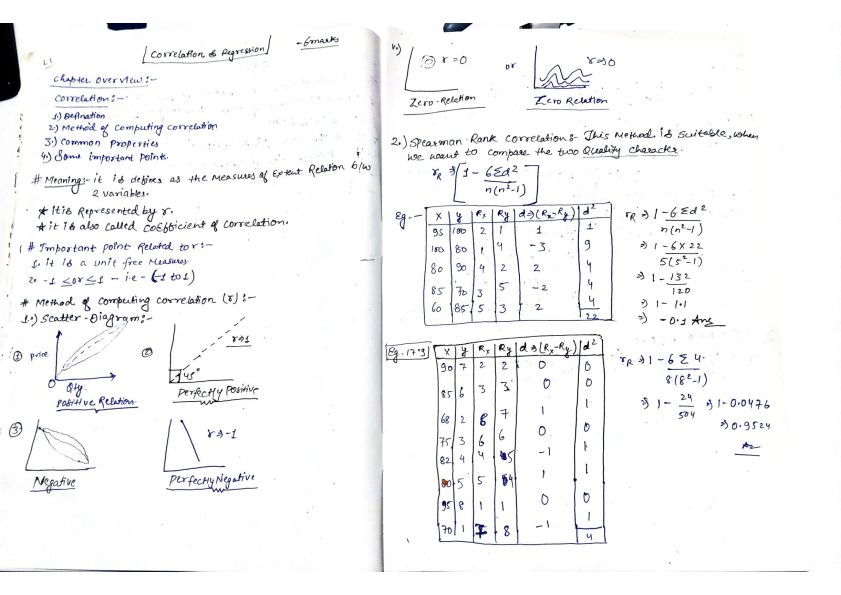 Correlation & Regression
- 6marks
Chapter Overview :-
Correlation :-
1) Definition
2) Method of computing correlation
3.) Common Properties
4.) Some important points.
# Meaning:- it is defines as the Measures of Extent Relation b/w
2 variables.
* It is Represented by r.
* it is also called Coefficient of Correlation.
# Important point Related to r :-
1. it is a unit free Measures
2. -1 ≤ or ≤ 1 - i.e - (-1 to 1)
# Method of Computing Correlation (r) :-
1.) Scatter - Diagram :-
① Price
O
Qty.
Positive Relation
②
r⇒1
45°
Perfectly Positive
③
Negative
r⇒-1
Perfectly Negative
r = 0
Zero-Relation
or
r⇒0
Zero Relation
2.) Spearman-Rank Correlation :- This Method is Suitable, when
we want to compare the two Quality Character.
r_R ⇒ 1 - 6Σd² / n(n²-1)
Eg. -
x y Rx Ry d⇒(Rx-Ry) d²
95 100 2 1 1 1
100 80 1 4 -3 9
80 90 4 2 2 4
85 70 3 -2 4
60 85 5 3 2 4
22
r_R ⇒ 1 - 6Σd² / n(n²-1)
⇒ 1 - 6×22 / 5(5²-1)
⇒ 1 - 132 / 120
⇒ 1 - 1.1
⇒ -0.1 Ans
Eg. 17.9
x y Rx Ry d⇒(Rx-Ry) d²
90 7 2 2 0 0
85 6 3 3 0 0
68 2 8 7 1 1
75 3 6 6 0 0
82 4 4 5 -1 1
80 5 5 4 1 1
95 8 1 1 0 0
70 1 7 8 -1 1
4
r_R ⇒ 1 - 6 Σ 4 / 8(8²-1)
⇒ 1 - 24 / 504 ⇒ 1-0.0476
⇒ 0.9524